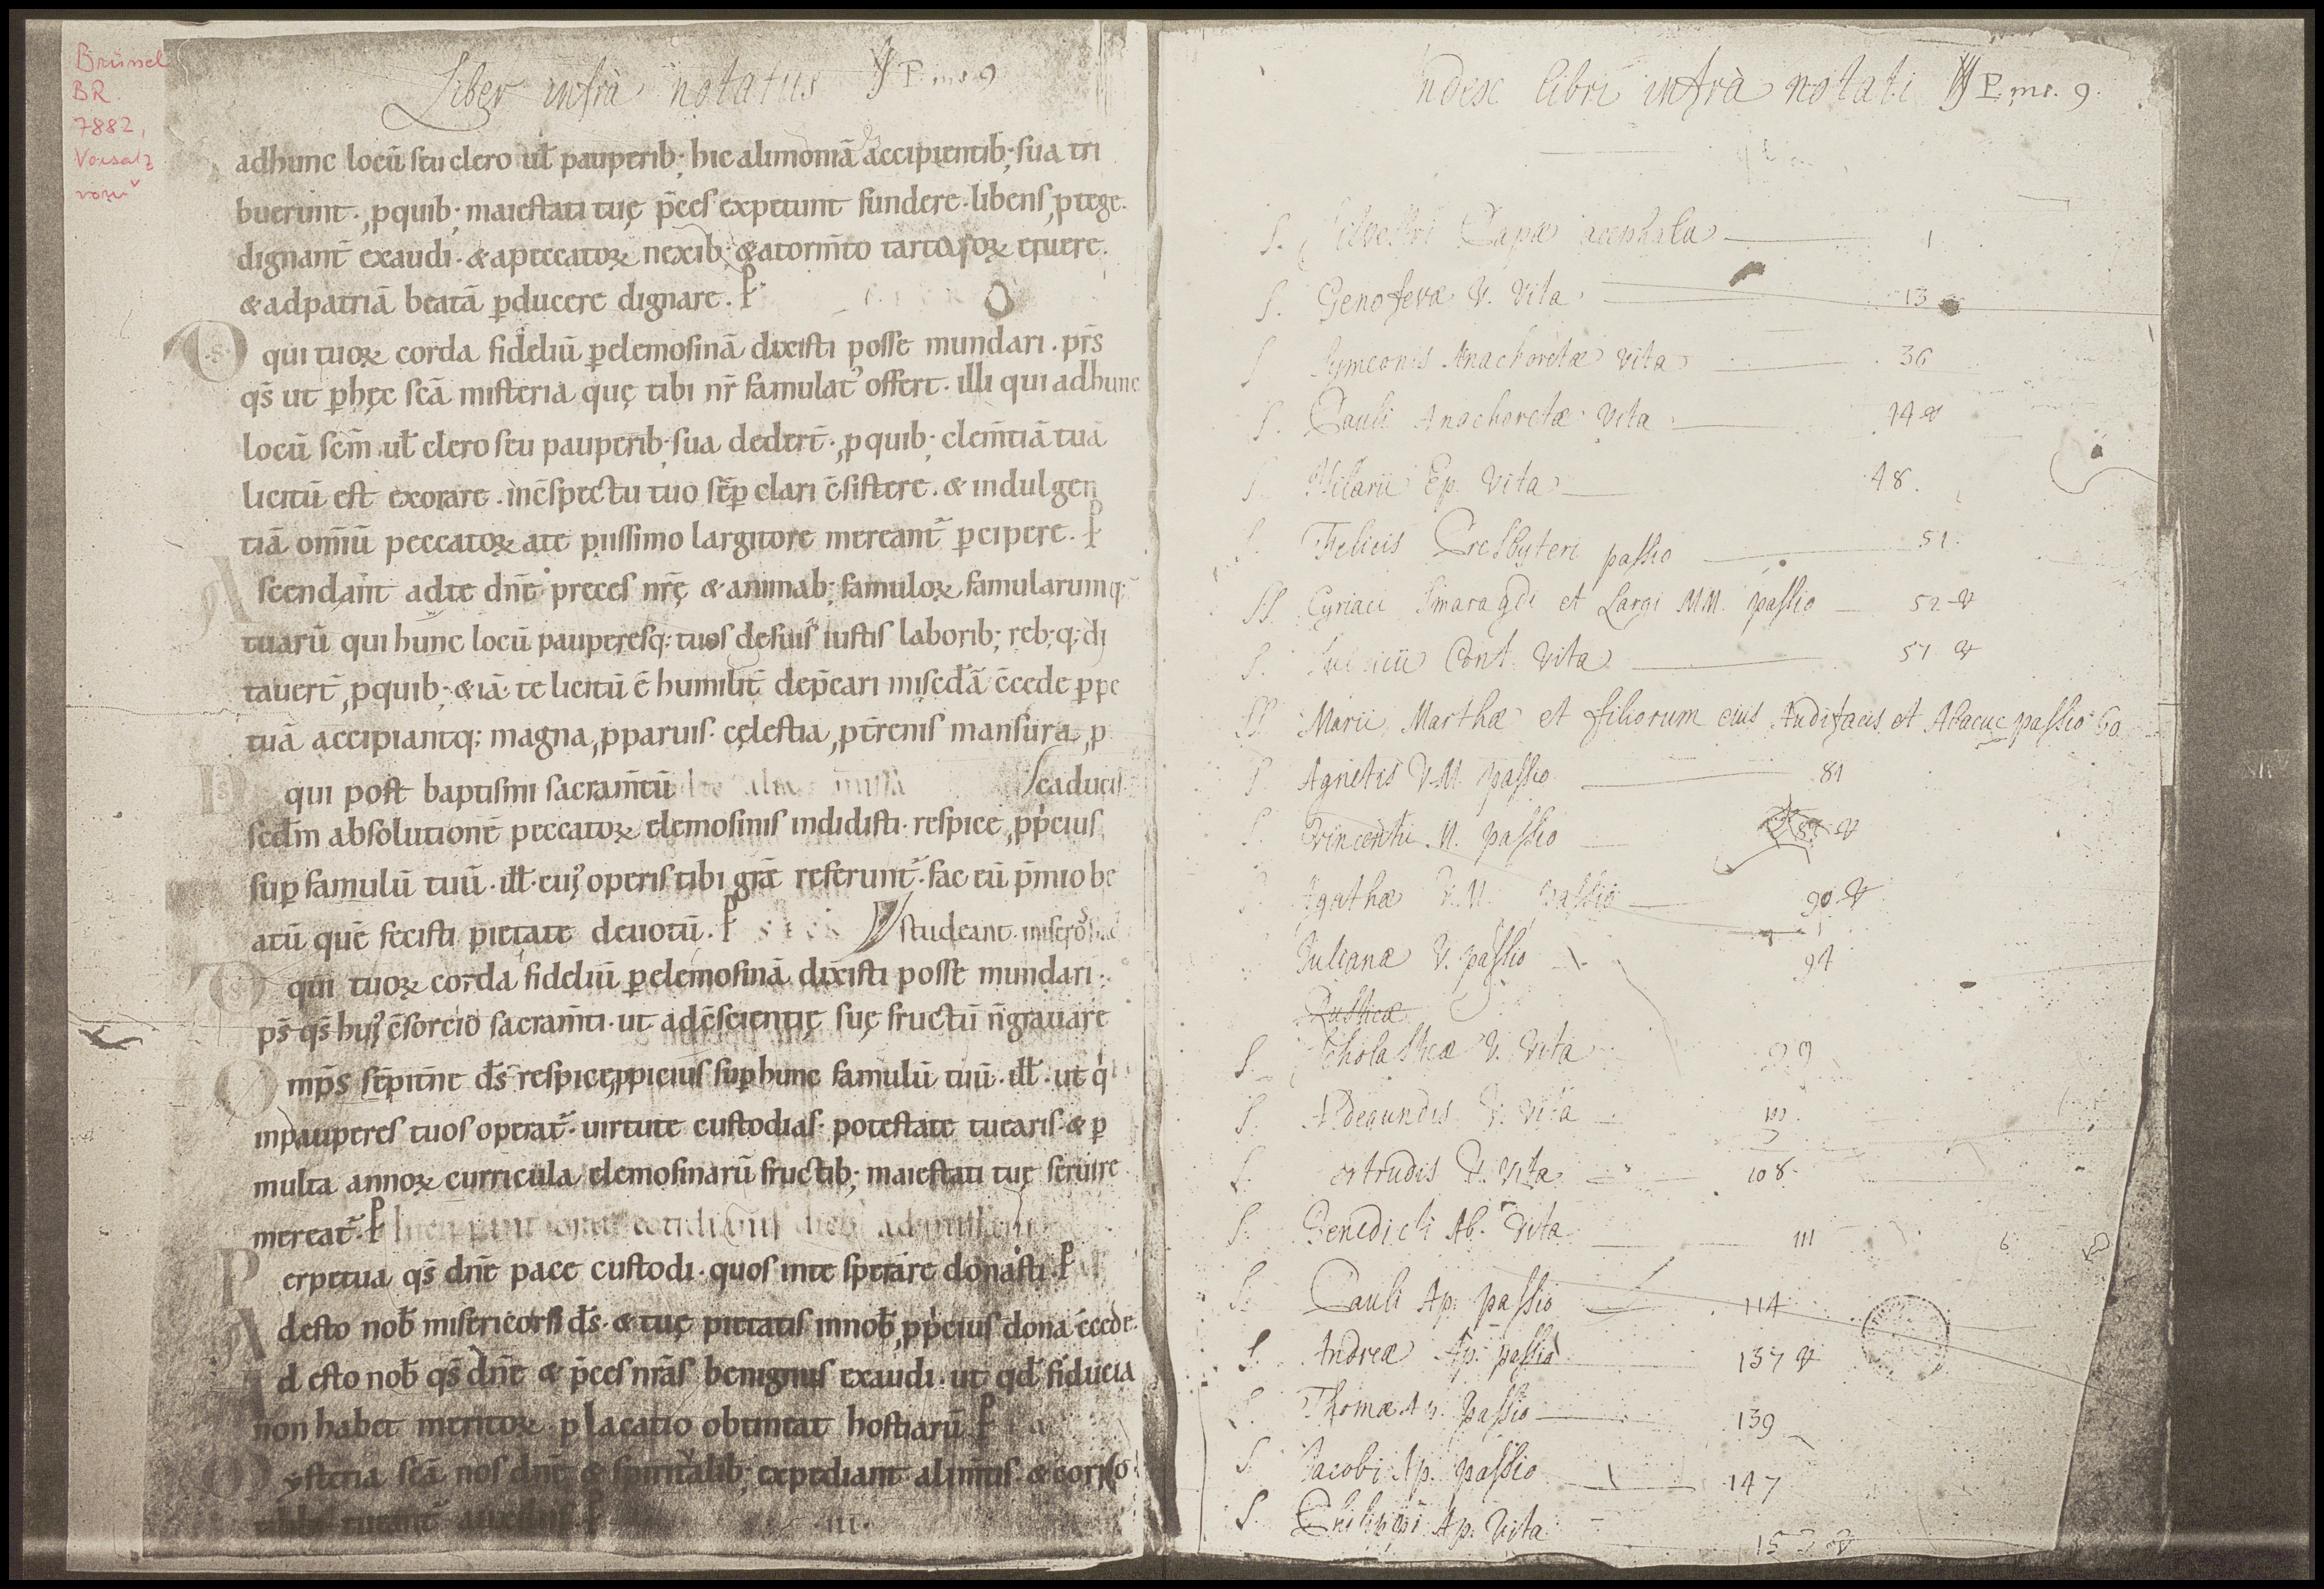 Brüssel
BR.
7882,
Vorsatz
Liber infrà notatus P. ms. 9
adhunc locū seu clero ul̄ pauperib; hic alimoniā accipientib; sua tri
buerunt. ꝓquib; maiestati tuę p̄ces expetunt fundere. libens ꝓtege.
dignant̄ exaudi. & apeccatoꝝ nexib; & atorm̄to tartaroꝝ eruere.
& adpatriā beatā ꝑducere dignare. P
Ds qui tuoꝝ corda fideliū ꝑelemosinā dixisti posse mundari. pr̄s
qs̄ ut ꝑhęc sc̄ā misteria quę tibi nr̄ famulatꝰ offert. illi qui adhunc
locū sc̄m ul̄ clero seu pauperib; sua dedert̄. ꝓquib; clem̄tiā tuā
licitū est exorare. inc̄spectu tuo sēꝑ clari c̄sistere. & indulgen
tiā om̄iū peccatoꝝ ate piissimo largitore mereant̄ ꝑcipere. P
Ascendant adte dn̄e preces nr̄ę & animab; famuloꝝ famularumq;
tuarū qui hunc locū pauperesq; tuos desuis iustis laborib; reb;q; di
tauert̄, ꝓquib; & iā te licitū ē humilit̄ dep̄cari mis̄cdā c̄cede ꝑpe
tuā accipiantq; magna, ꝓparuis. cęlestia, ꝓt̄renis mansura, ꝓ
Ds qui post baptismi sacram̄tū caducis.
scdm̄ absolutionē peccatoꝝ elemosinis indidisti. respice ꝓp̄cius
suꝑ famulū tuū. ill̄. cuiꝰ operis tibi grā̄e referunt̄. fac eū p̄mio be
atū quē fecisti pietate deuotū. P studeant
Ds qui tuoꝝ corda fideliū ꝑelemosinā dixisti posse mundari.
ps̄ qs̄ huiꝰ c̄sorcio sacram̄ti. ut adc̄scientię suę fructū n̄ grauare
Omp̄s sēpit̄ne ds̄ respice ꝓpicius suꝑ hunc famulū tuū. ill̄. ut q̇
inpauperes tuos operat̄. uirtute custodias. potestate tuearis. & ꝑ
multa annoꝝ curricula elemosinarū fructib; maiestati tuę seruire
mereat̄. P
Perpetua qs̄ dn̄e pace custodi. quos inte sperare donasti. P
Adesto nob̄ misericors ds̄. & tuę pietatis innob̄ ꝓp̄cius dona c̄cede.
Adesto nob̄ qs̄ dn̄e & p̄ces nr̄as benignus exaudi. ut qd̄ fiducia
non habet meritoꝝ. placatio obtineat hostiarū P
Mysteria sc̄ā nos dn̄e & spiritalib; expediant alim̄tis. & corꝑo
Index libri infrà notati P. ms. 9.
S. Silvestri Papæ acephala 1
S. Genofevæ V. Vita 13
S. Symeonis Anachoretæ vita 36
S. Pauli Anachoretæ Vita 44 v
S. Hilarii Ep. Vita 48.
S. Felicis Presbyteri passio 51.
SS. Cyriaci Smaragdi et Largi MM. passio 52 v
S. Sulpicii Conf. Vita 57 v
SS. Marii, Marthæ et filiorum eius Audifacis et Abacuc passio 60
S. Agnetis V.M. passio 81
S. Vincentii M. passio
S. Agathæ V.M. passio 90 v
Julianæ V. passio 94
Rusticæ
S. Scholasticæ V. Vita 99
S. Aldegundis V. Vita
S. Gertrudis V. Vita 108
S. Benedicti Ab. Vita 111
S. Pauli Ap. passio 114
S. Andreæ Ap. passio 137 v
S. Thomæ Ap. passio 139
S. Jacobi Ap. passio 147
S. Philippi Ap. Vita